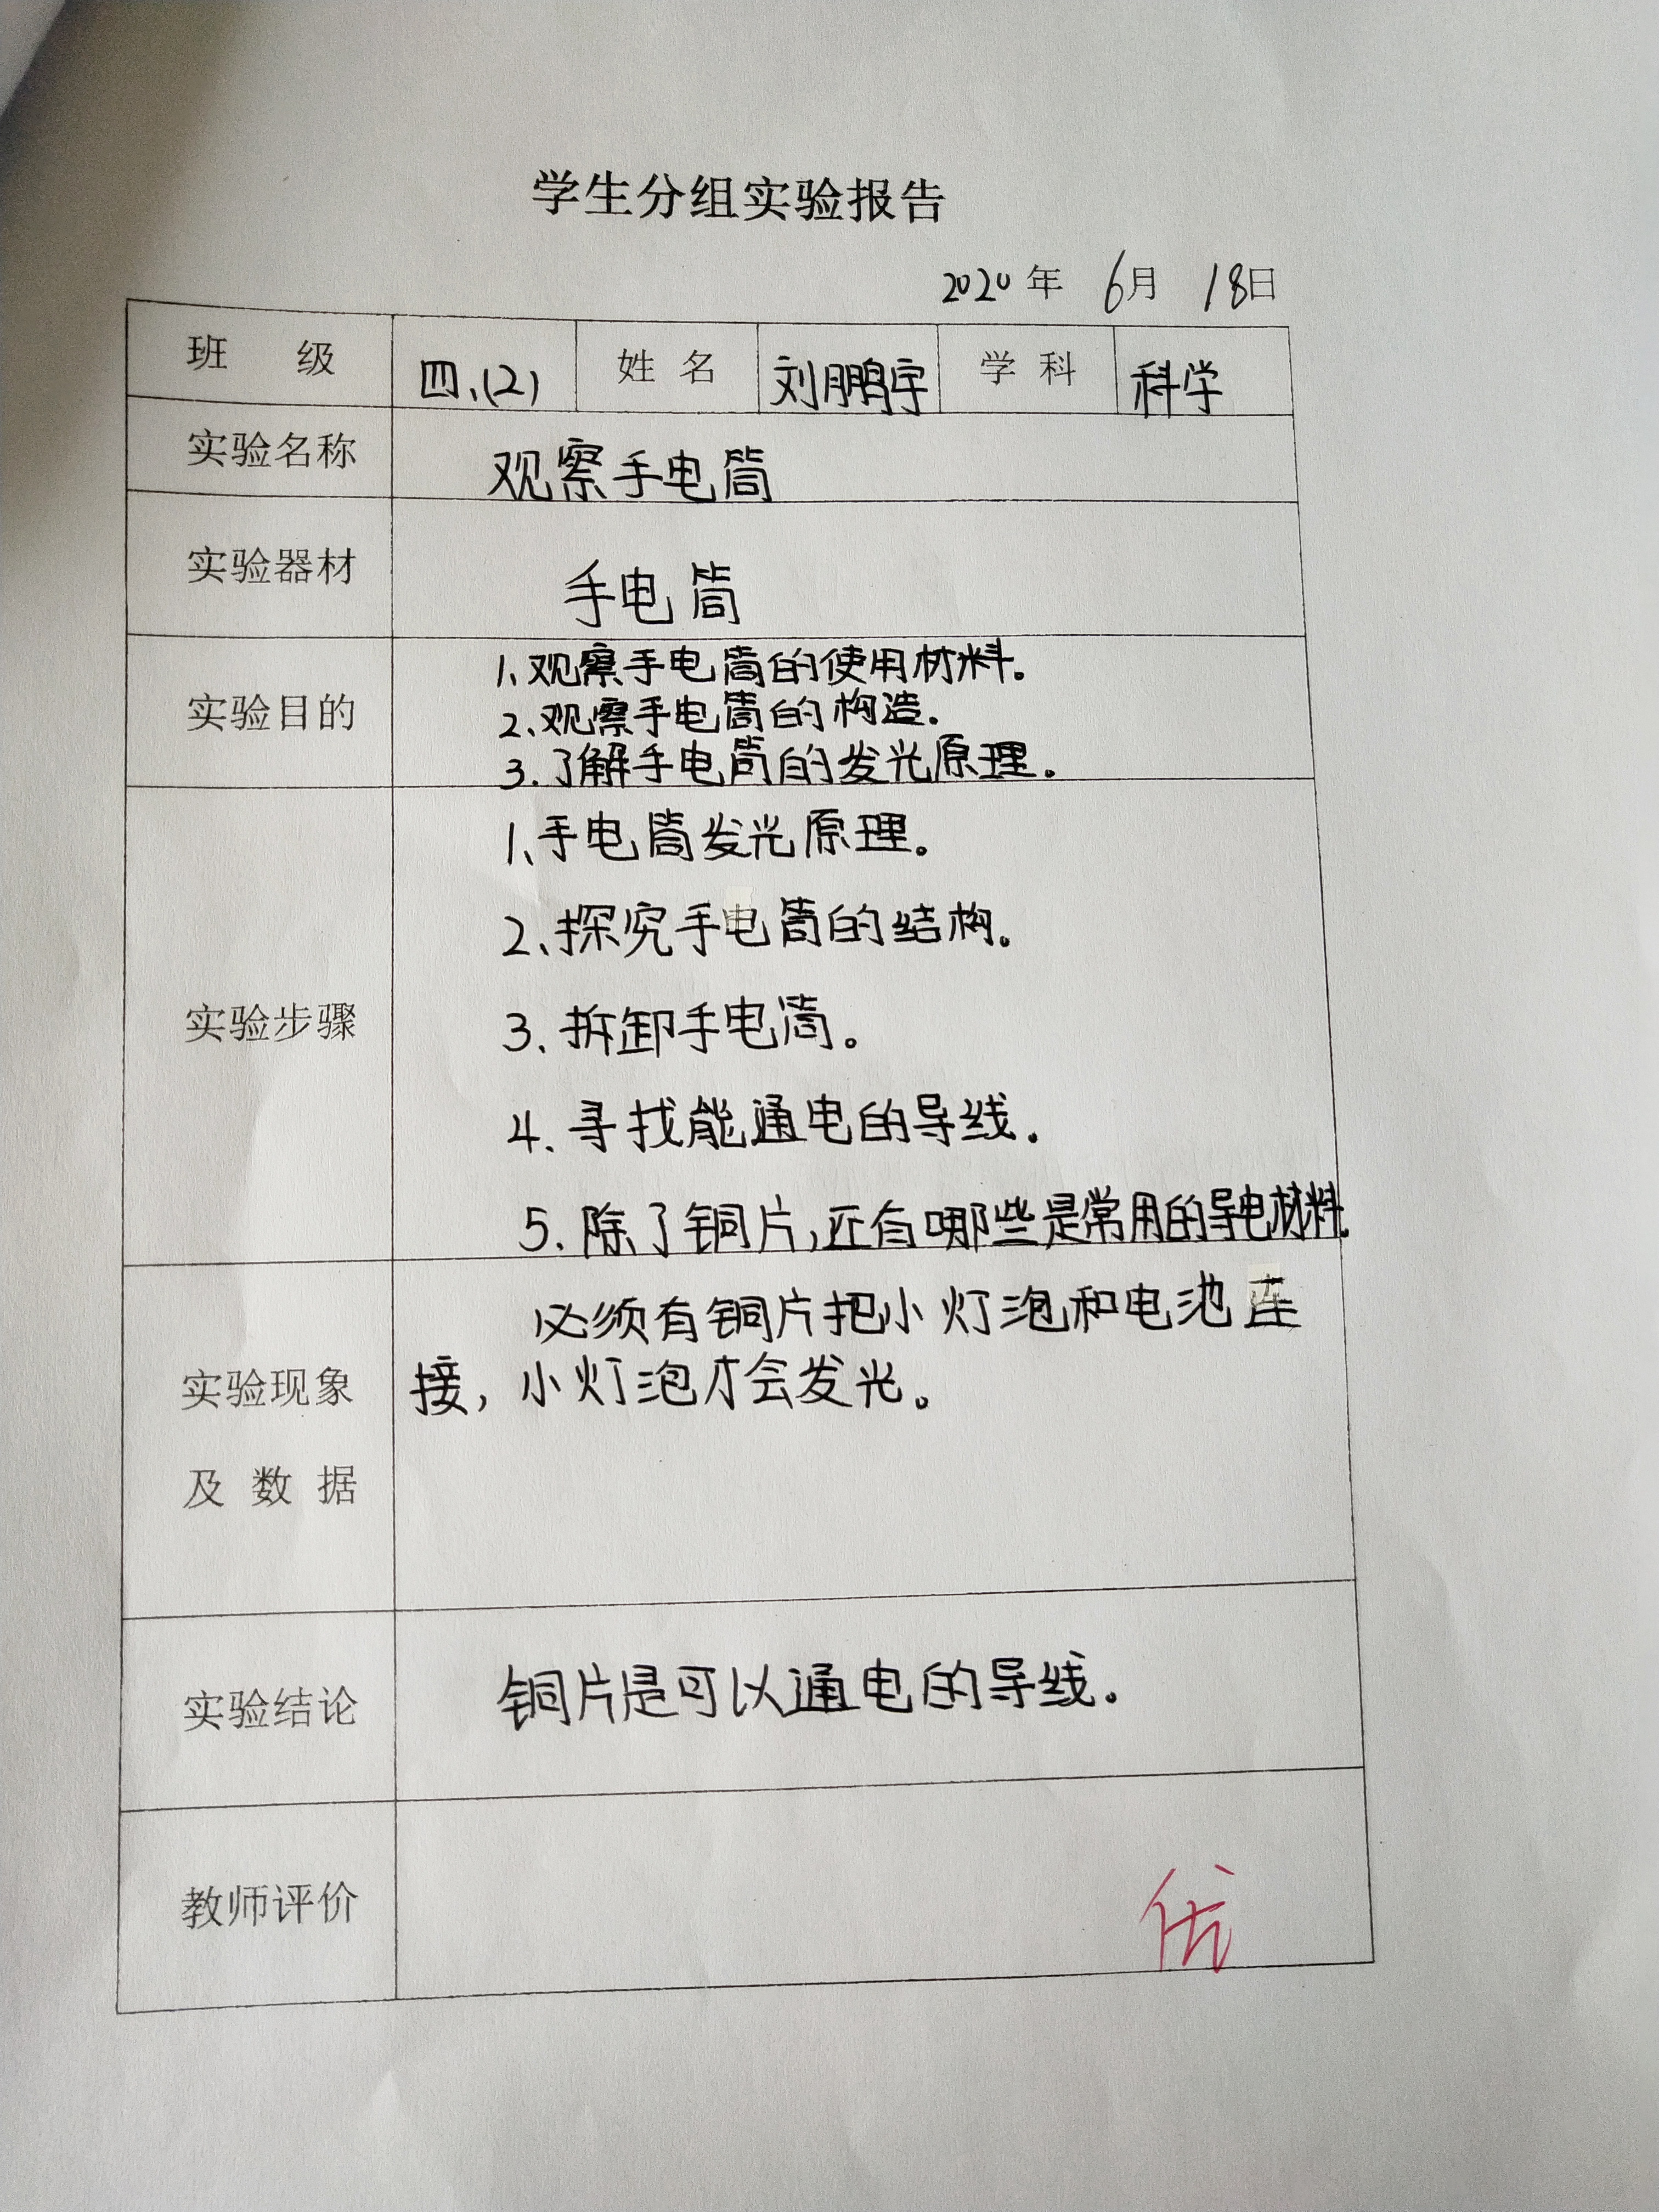 学生分组实验报告
2020年 6月 18日
班 级 四、(2) 姓名 刘鹏宇 学科 科学
实验名称 观察手电筒
实验器材 手电筒
实验目的 1、观察手电筒的使用材料。
2、观察手电筒的构造.
3.了解手电筒的发光原理。
实验步骤 1、手电筒发光原理。
2、探究手电筒的结构。
3、拆卸手电筒。
4、寻找能通电的导线.
5、除了铜片,还有哪些是常用的导电材料.
实验现象及数据 必须有铜片把小灯泡和电池连
接,小灯泡才会发光。
实验结论 铜片是可以通电的导线。
教师评价 优